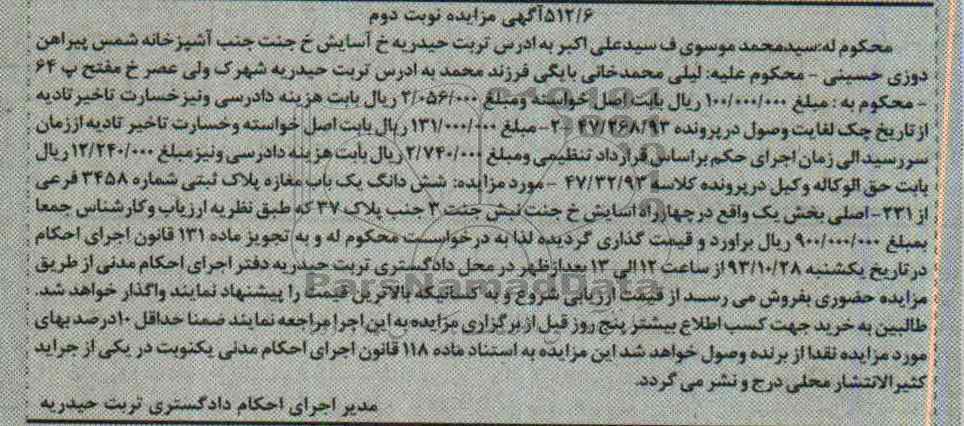 ۵۱۲/۶آگهی مزایده نوبت دوم
محکوم له:سیدمحمد موسوی ف سیدعلی اکبر به ادرس تربت حیدریه خ آسایش خ جنت جنب آشپزخانه شمس پیراهن
دوزی حسینی - محکوم علیه: لیلی محمدخانی بایگی فرزند محمد به ادرس تربت حیدریه شهرک ولی عصر خ مفتح پ ۶۴
- محکوم به : مبلغ ۱۰۰/۰۰۰/۰۰۰ ریال بابت اصل خواسته ومبلغ ۲/۰۵۶/۰۰۰ ریال بابت هزینه دادرسی ونیزخسارت تاخیرتادیه
ازتاریخ چک لغایت وصول درپرونده ۴۷/۲۶۸/۹۳ -۲- مبلغ ۱۳۱/۰۰۰/۰۰۰ ریال بابت اصل خواسته وخسارت تاخیر تادیه اززمان
سررسیدالی زمان اجرای حکم براساس قرارداد تنظیمی ومبلغ ۲/۷۴۰/۰۰۰ ریال بابت هزینه دادرسی ونیزمبلغ ۱۲/۲۴۰/۰۰۰ریال
بابت حق الوکاله وکیل درپرونده کلاسه ۴۷/۳۲/۹۳ - مورد مزایده: شش دانگ یک باب مغازه پلاک ثبتی شماره ۳۴۵۸ فرعی
از ۲۳۱- اصلی بخش یک واقع درچهارراه اسایش خ جنت نبش جنت ۳ جنب پلاک ۳۷ که طبق نظریه ارزیاب وکارشناس جمعا
بمبلغ ۹۰۰/۰۰۰/۰۰۰ ریال براورد و قیمت گذاری گردیده لذا به درخواست محکوم له و به تجویز ماده ۱۳۱ قانون اجرای احکام
درتاریخ یکشنبه ۹۳/۱۰/۲۸ از ساعت ۱۲الی ۱۳ بعدازظهر در محل دادگستری تربت حیدریه دفتر اجرای احکام مدنی از طریق
مزایده حضوری بفروش می رسد از قیمت ارزیابی شروع و به کسانیکه بالاترین قیمت را پیشنهاد نمایند واگذار خواهد شد.
طالبین به خرید جهت کسب اطلاع بیشتر پنج روز قبل ازبرگزاری مزایده به این اجرا مراجعه نمایند ضمنا حداقل ۱۰درصد بهای
مورد مزایده نقدا از برنده وصول خواهد شد این مزایده به استناد ماده ۱۱۸ قانون اجرای احکام مدنی یکنوبت در یکی از جراید
کثیرالانتشار محلی درج و نشر می گردد.
مدیر اجرای احکام دادگستری تربت حیدریه
ParsNamadData